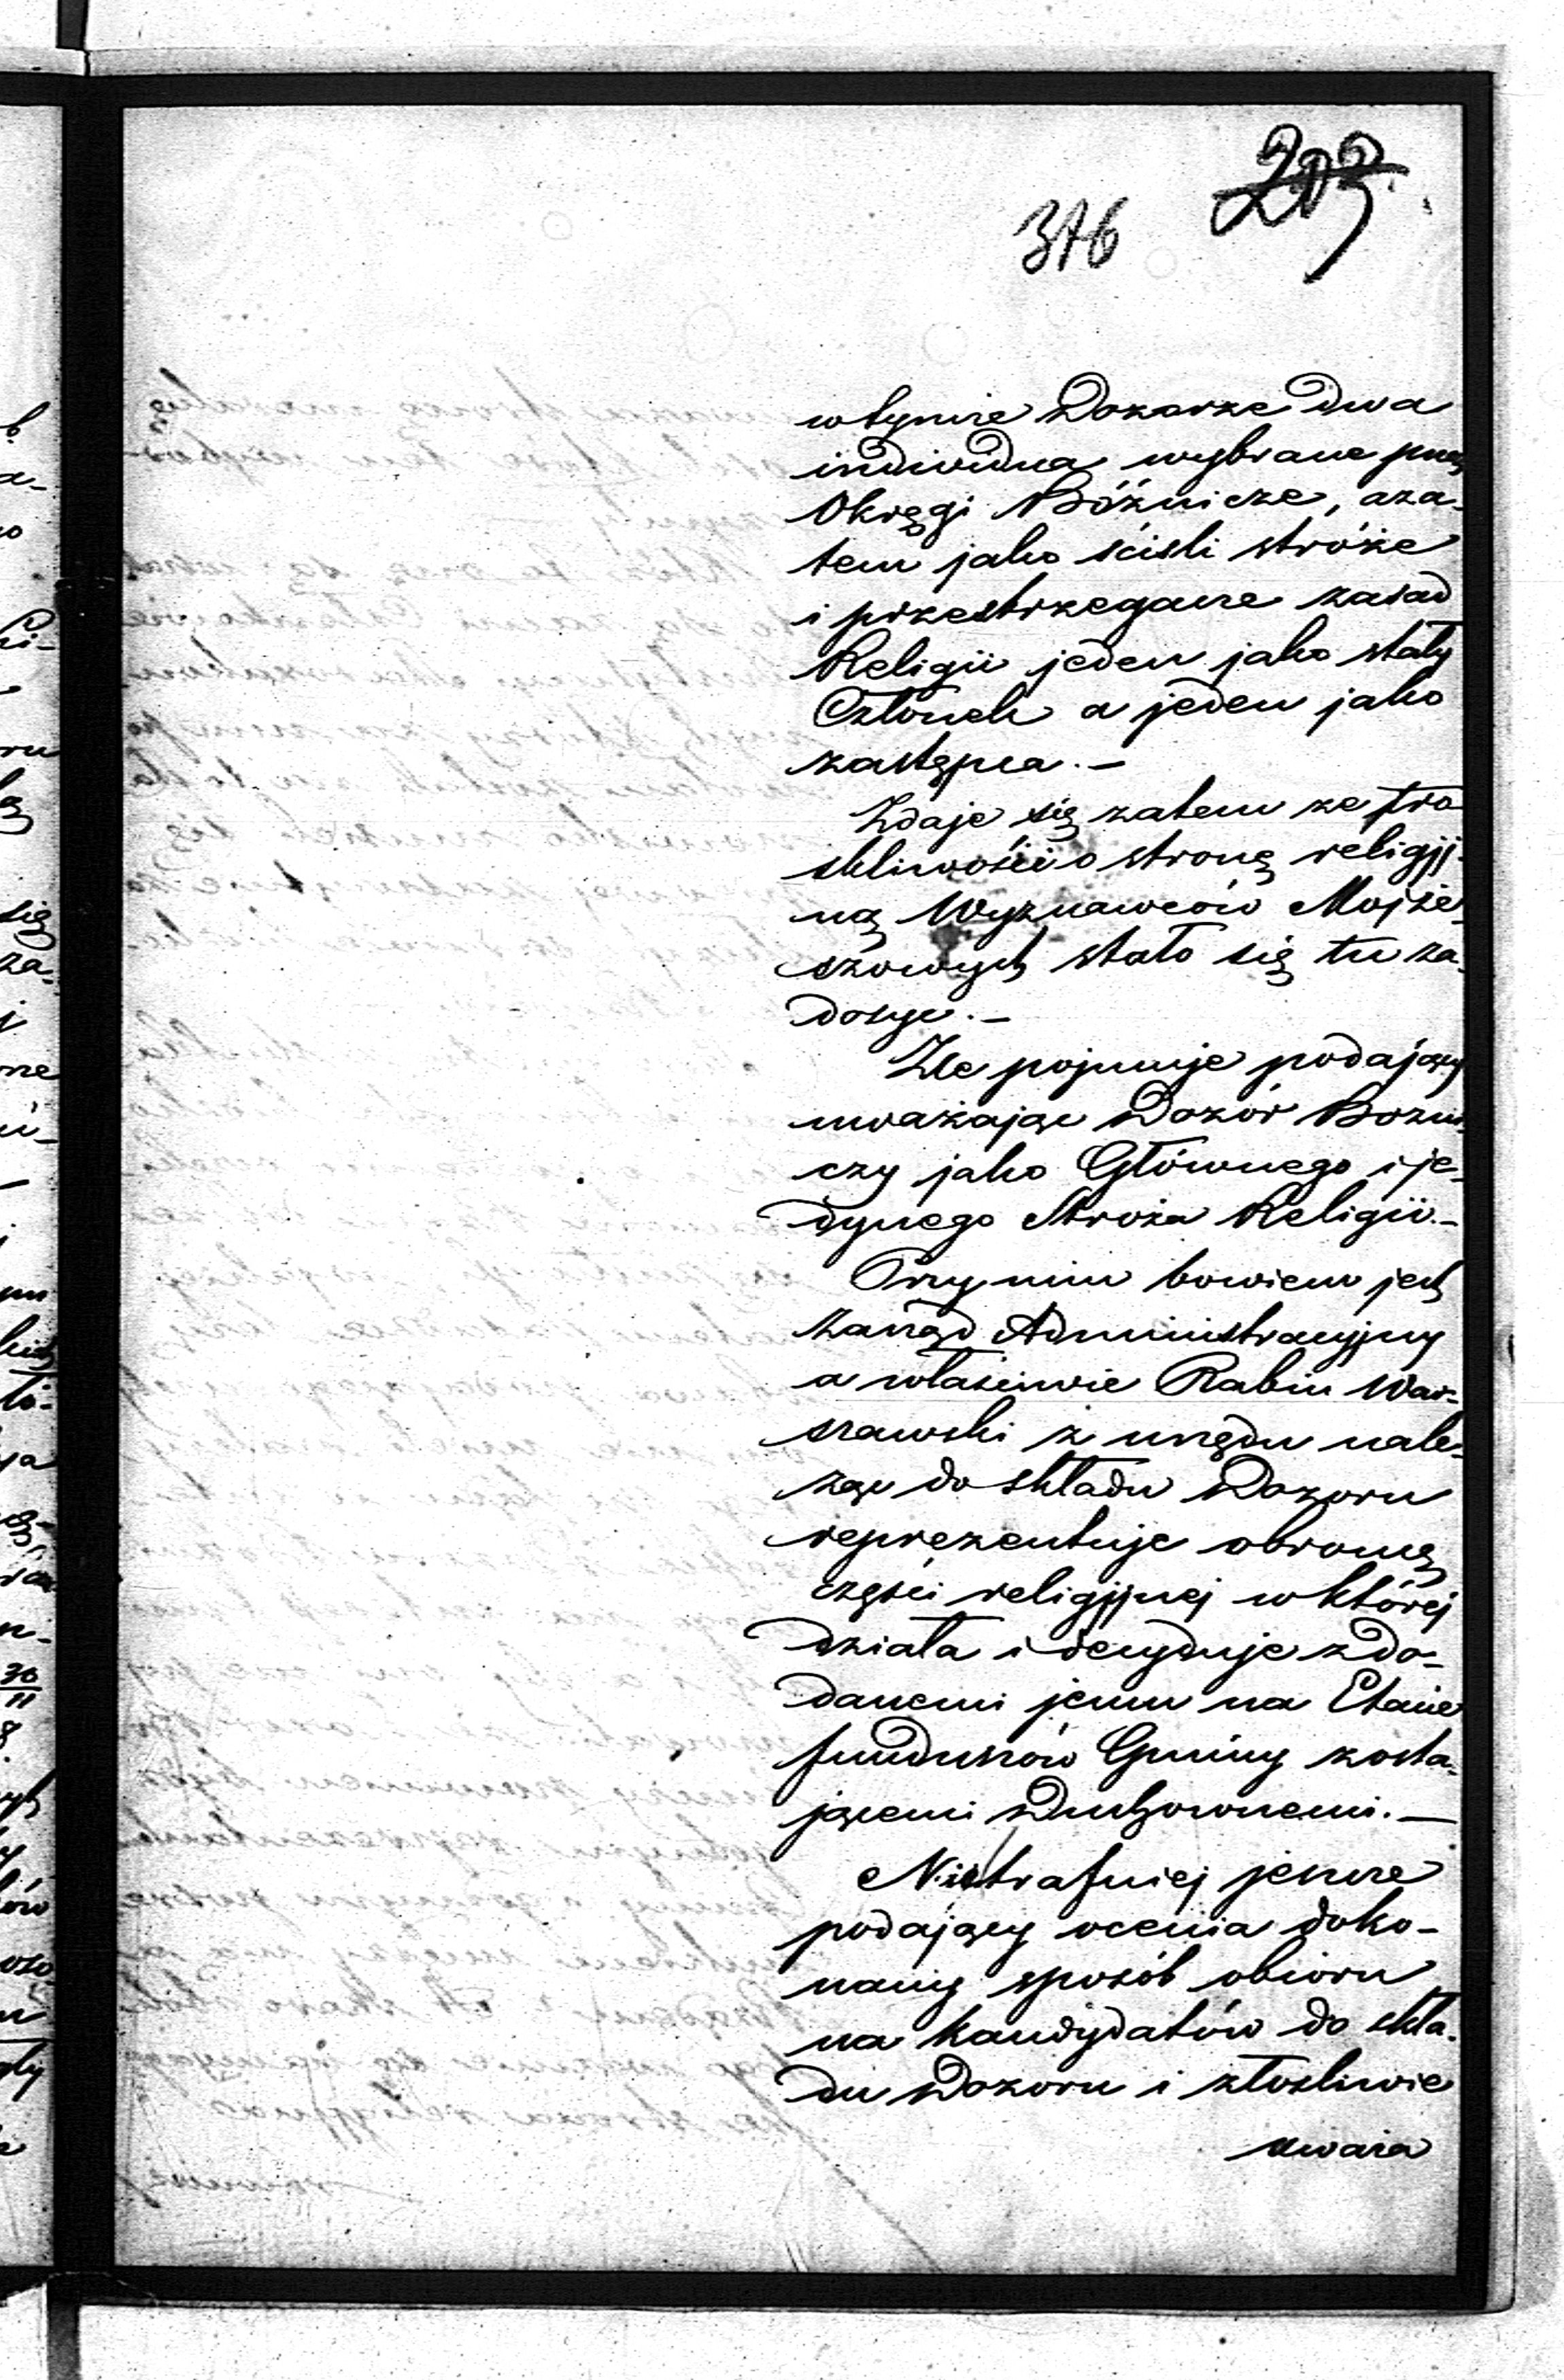 203.
316
w tymże Dozorze dwa
individua wybrane przez
Okręgi Bóżnicze, a za-
tem jako ściśli stróże
i przestrzegacze zasad
Religii jeden jako stały
Członek a jeden jako
zastępca. —
Zdaje się zatem ze tro-
skliwości o stronę religij-
ną Wyznawców Mojże-
szowych stało się tu za-
dosyc. —
Zle pojmuje podający
uważając Dozór Bozni-
czy jako Głównego i je-
dynego Stroża Religii. —
Przy nim bowiem jest
Zarząd Administracyjny
a właściwie Rabin War-
szawski z urzędu nale-
żąc do składu Dozoru
reprezentuje obronę
części religijnej w której
działa i decyduje z do-
danemi jemu na Etacie
funduszów Gminy zosta-
jącemi Duchownemi. —
Nietrafniej jeszcze
podający ocenia doko-
nany sposób obioru
na kandydatów do skła-
du Dozoru i złośliwie
uważa